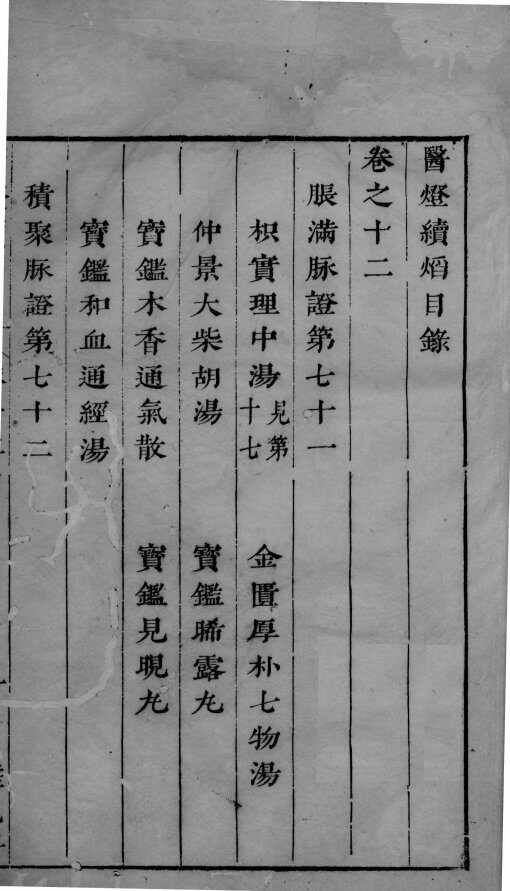 醫燈續熖目錄
卷之十二
脹滿脉證第七十一
枳實理中湯 見第十七 金匱厚朴七物湯
仲景大柴胡湯 寶鑑晞露丸
寶鑑木香通氣散 寶鑑見晛丸
寶鑑和血通經湯
積聚脉證第七十二